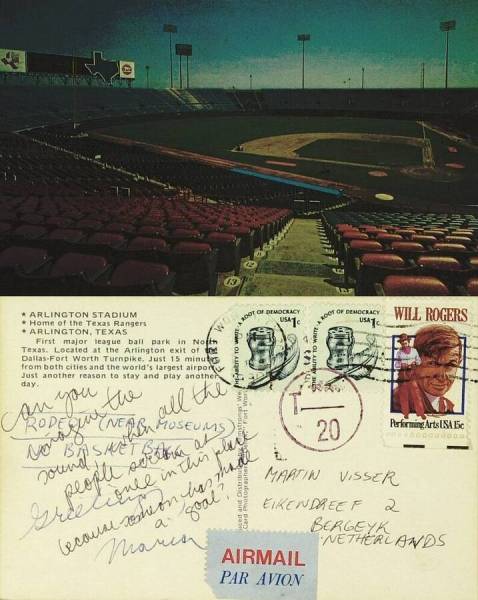 ★ ARLINGTON STADIUM
★ Home of the Texas Rangers
★ ARLINGTON, TEXAS
First major league ball park in North
Texas. Located at the Arlington exit of
Dallas-Fort Worth Turnpike. Just 15 minutes
from both cities and the world's largest airport
Just another reason to stay and play another
day.
Can you
imagine the
RODEO (NEAR MUSEUMS)
BASKET BALL
sound when all the
people scream at
once in this place
because someone has made
a "goal"
Greetings
TO WRITE - A ROOT OF DEMOCRACY
USA 1c
TO WRITE - A ROOT OF DEMOCRACY
USA 1c
WILL ROGERS
Performing Arts USA 15c
FORT WO
T
20
MARTIN VISSER
EIKENDREEF 2
BERGEYK
NETHERLANDS
AIRMAIL
PAR AVION
13